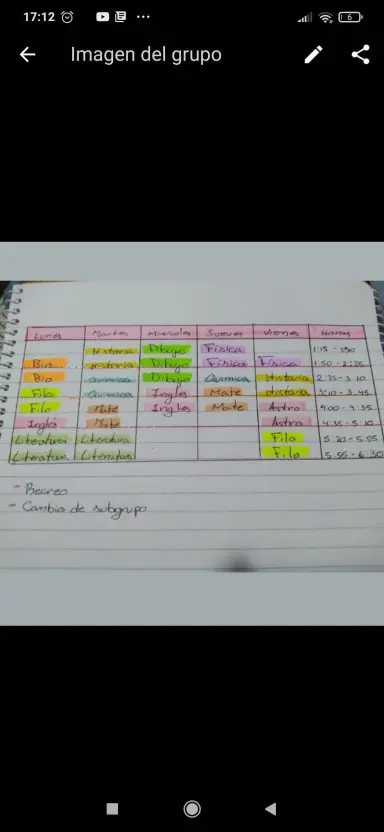 17:12
6
Imagen del grupo
Lunes Martes Miercoles Jueves Viernes Horas
Historia Dibujo Fisica 1:15 - 1:50
Bio Historia Dibujo Fisica Fisica 1:50 - 2:25
Bio Quimica Dibujo Quimica Historia 2:35 - 3:10
Filo Quimica Ingles Mate Historia 3:10 - 3:45
Filo Mate Ingles Mate Astro 4:00 - 4:35
Ingles Mate Astro 4:35 - 5:10
Literatura Literatura Filo 5:20 - 5:55
Literatura Literatura Filo 5:55 - 6:30
- Recreo
- Cambio de subgrupo